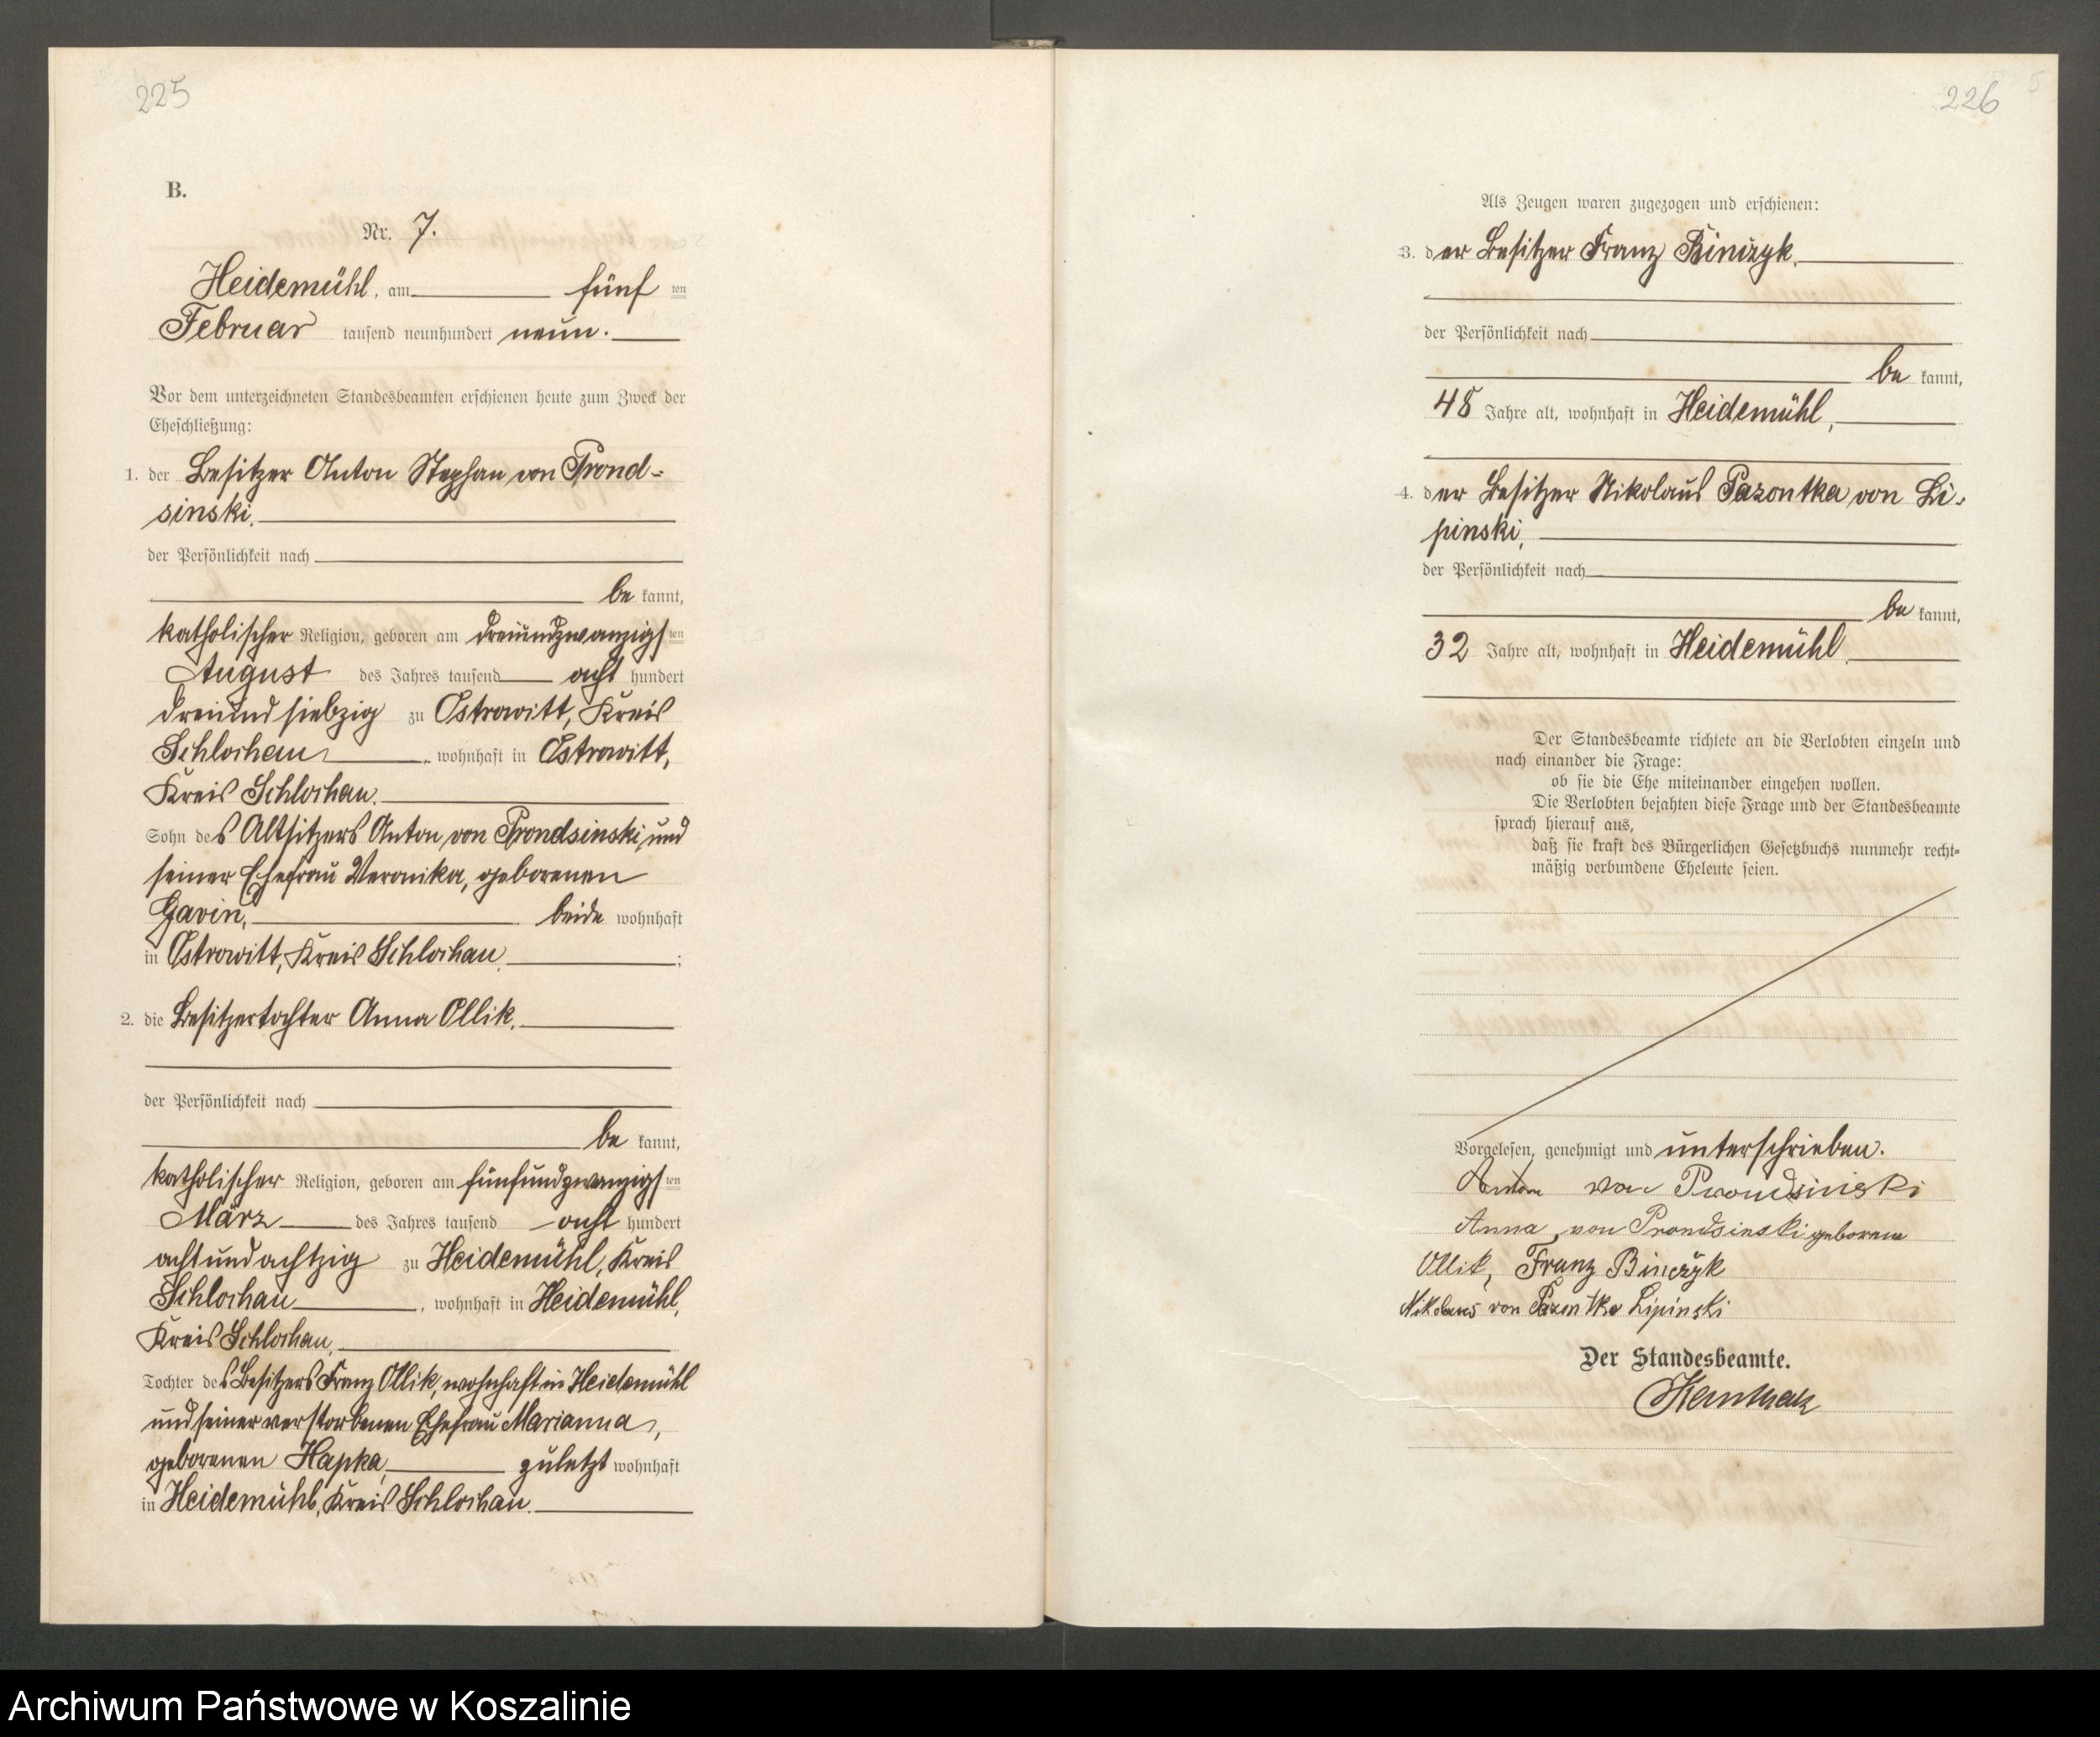 225
B.
Nr. 7.
Heidemühl, am fünf ten
Februar tausend neunhundert neun.
Vor dem unterzeichneten Standesbeamten erschienen heute zum Zweck der
Eheschließung:
1. der Besitzer Anton Stephan von Prond-
sinski,
der Persönlichkeit nach
be kannt,
katholischer Religion, geboren am dreiundzwanzigs ten
August des Jahres tausend acht hundert
dreiundsiebzig zu Ostrowitt, Kreis
Schlochau, wohnhaft in Ostrowitt,
Kreis Schlochau.
Sohn des Altsitzers Anton von Prondsinski und
seiner Ehefrau Veronika, geborenen
Gavin, beide wohnhaft
in Ostrowitt, Kreis Schlochau, ;
2. die Besitzertochter Anna Ollik,
der Persönlichkeit nach
be kannt,
katholischer Religion, geboren am fünfundzwanzigs ten
März des Jahres tausend acht hundert
achtundachtzig zu Heidemühl, Kreis
Schlochau, wohnhaft in Heidemühl,
Kreis Schlochau,
Tochter des Besitzers Franz Ollik, wohnhaft in Heidemühl
und seiner verstorbenen Ehefrau Marianna,
geborenen Hapka, zuletzt wohnhaft
in Heidemühl, Kreis Schlochau.
226
Als Zeugen waren zugezogen und erschienen:
3. der Besitzer Franz Binczyk,
der Persönlichkeit nach
be kannt,
48 Jahre alt, wohnhaft in Heidemühl,
4. der Besitzer Nikolaus Pazontka von Li-
pinski,
der Persönlichkeit nach
be kannt,
32 Jahre alt, wohnhaft in Heidemühl.
Der Standesbeamte richtete an die Verlobten einzeln und
nach einander die Frage:
ob sie die Ehe miteinander eingehen wollen.
Die Verlobten bejahten diese Frage und der Standesbeamte
sprach hierauf aus,
daß sie kraft des Bürgerlichen Gesetzbuchs nunmehr recht-
mäßig verbundene Eheleute seien.
Vorgelesen, genehmigt und unterschrieben.
Anton von Prondsinski
Anna von Prondsinski geborene
Ollik, Franz Binczyk
Nikolaus von Pazontka Lipinski
Der Standesbeamte.
Archiwum Państwowe w Koszalinie